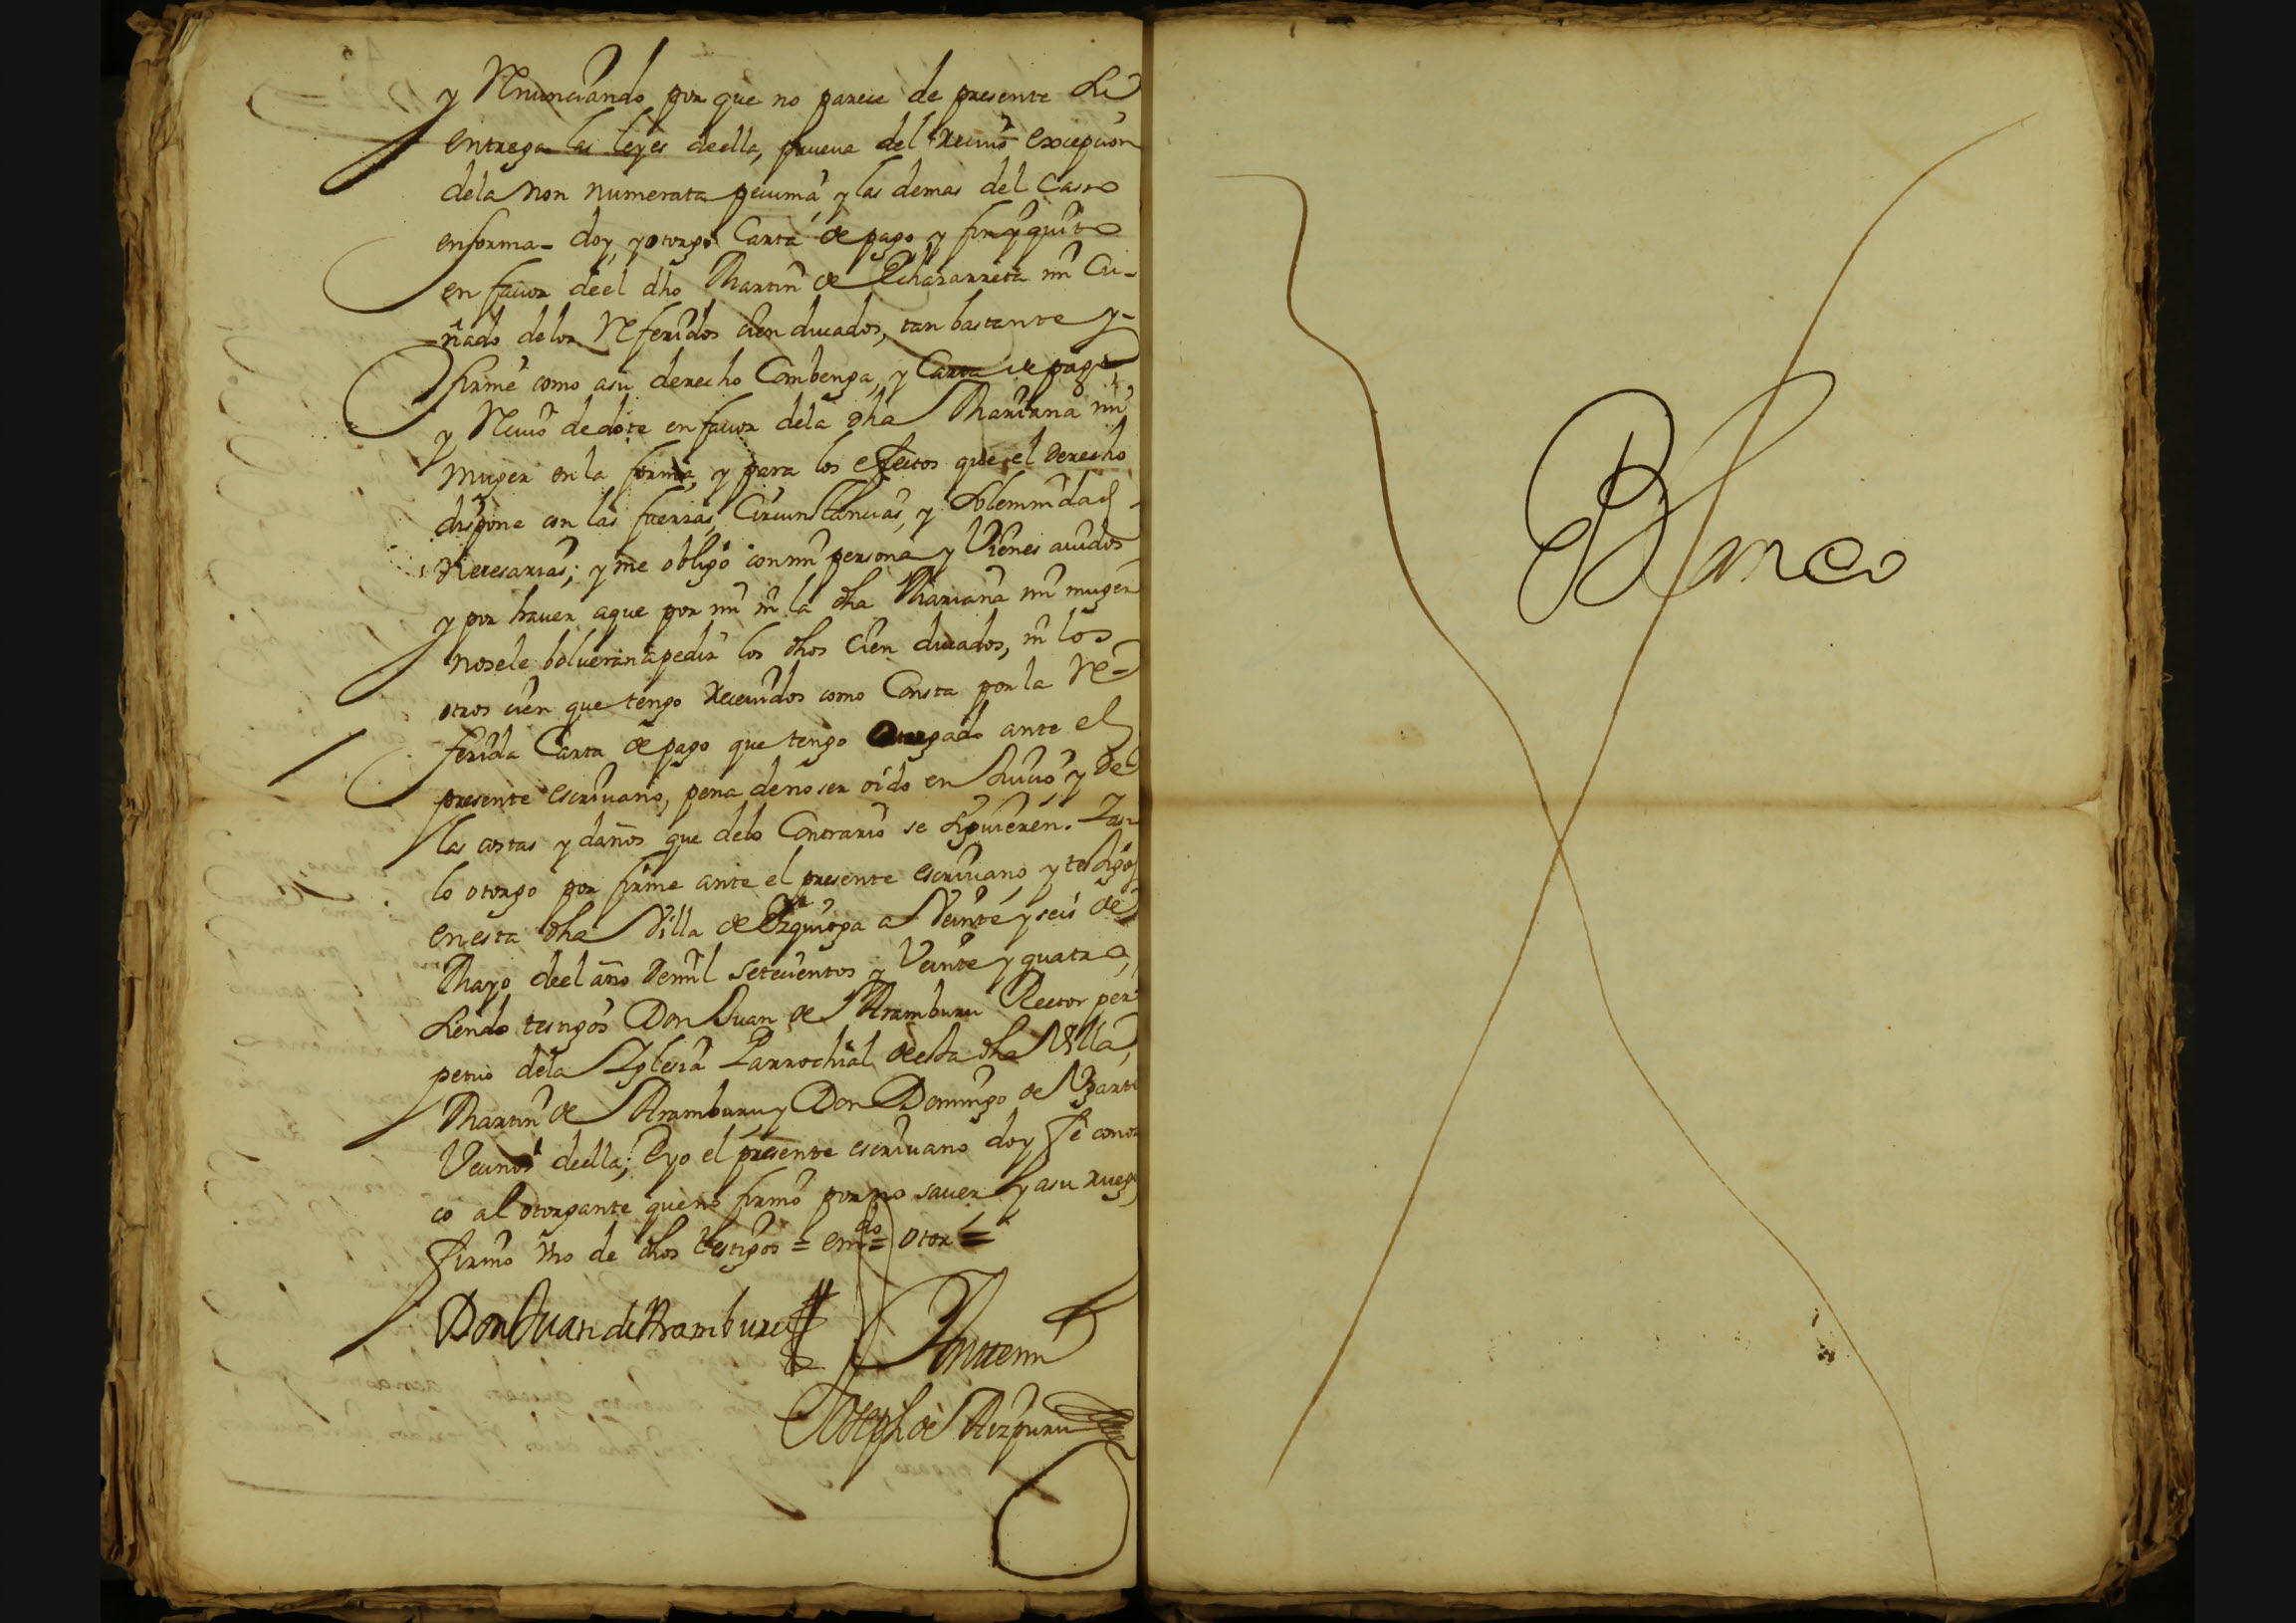 y Renunciando por que no pareze de presente Su
entrega las leyes deella, prueva del Reciuo excepcion
dela non numerata pecunia, y las demas del Casso
enforma- doy, y otorgo Carta de pago y finyquito
en fauor deel dho Martin de Echazarreta mi Cu-
ñado delos Referidos cien ducados, tan bastante y-
firme como asu derecho Combenga, y Carta de pago
y Reciuo dedote en fauor dela dha Mariana mi
muger en la forma, y para los efectos que el derecho
dispone con las fuerzas, Circunstancias, y Solemnidad
Necesarias; y me obligo con mi persona y Vienes auidos
y por hauer aque por mi ni la dha Mariana mi muger
nosele bolueran apedir los dhos Cien ducados, ni los
otros cien que tengo Receuidos como Consta por la Re-
ferida Carta de pago que tengo Otorgado ante el
presente escriuano, pena deno ser oido en Juicio y de
las costas y daños que delo Contrario se Siguieren. Y asi
lo otorgo por firme ante el presente escriuano y testigos
en esta dha Villa de Ezquioga a Veinte y seis de
Mayo deel año Demil setecientos y Veinte y quatro,
Siendo testigos Don Juan de Aramburu Rector per
petuo dela Yglesia Parrochial desta dha Villa,
Martin de Aramburu y Don Domingo de
Vecinos deella; E yo el presente escriuano doy fe cono
co al otorgante que no firmo por no sauer y asu ruego
firmo Vno de dhos testigos = emdo = otor =
Don Juan de Aramburu
Antemi
Joseph de Aizpuru
Blanco